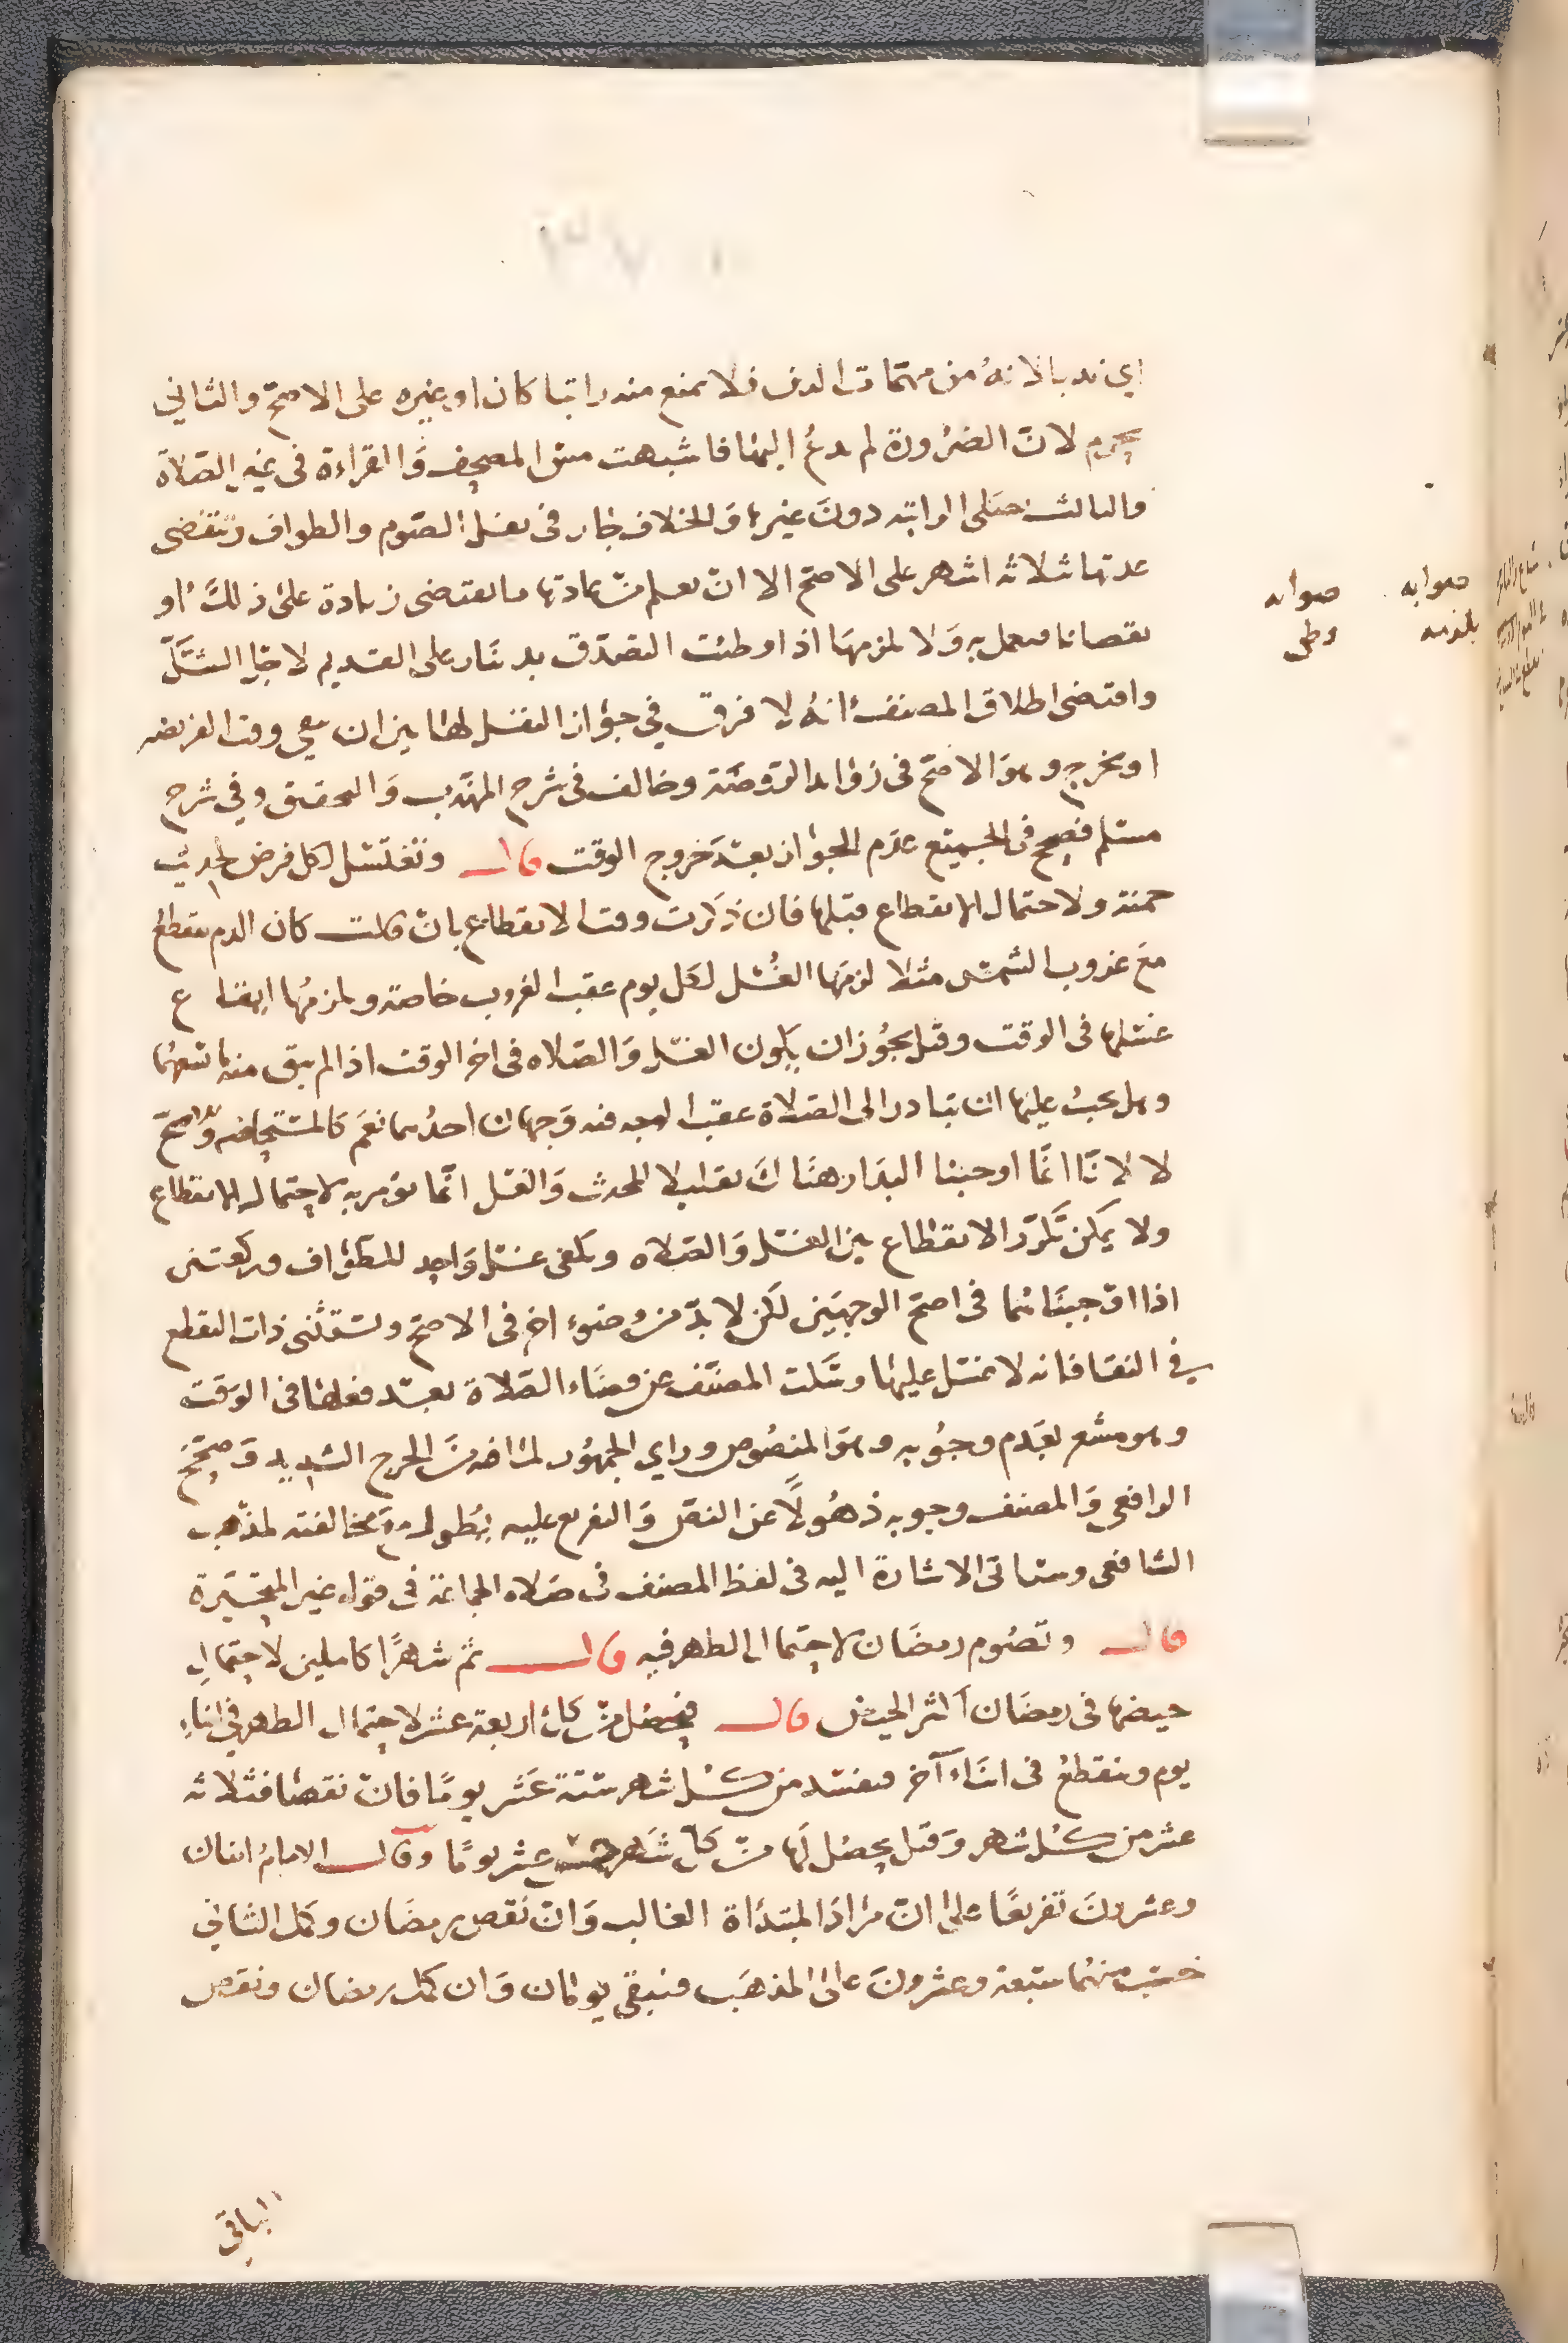 اي ندبا لانه من مهمات الدين فلا تمنع منه راتبا كان او غيره على الاصح والثاني
يحرم لان الضرورة لم تدع اليها فاشبهت مس المصحف والقراءة في غير الصلاة
والثالث تصلى الراتبه دون غيرها والخلاف جار في نفل الصوم والطواف وتنقضى
عدتها بثلاثه اشهر على الاصح الا ان يعلم من عادتها ما يقتضى زيادة على ذلك او
نقصانا فيعمل به ولا يلزمها اذا وطئت التصدق بدينار على القديم لاجل الشك
واقتضى اطلاق المصنف انه لا فرق في جواز النفل لها بين ان يبقى وقت الفريضه
او يخرج وهو الاصح في زوائد الروضة وخالف في شرح المهذب والتحقيق وفي شرح
مسلم فصحح في الجميع عدم الجواز بعد خروج الوقت قال وتغتسل لكل فرض لحديث
حمنة ولاحتمال الانقطاع قبلها فان ذكرت وقت الانقطاع بان قالت كان الدم ينقطع
مع غروب الشمس مثلا لزمها الغسل لكل يوم عقب الغروب خاصة ويلزمها ايقاع
غسلها في الوقت وقيل يجوز ان يكون الغسل والصلاه في اخر الوقت اذا لم يبق منه ما يسعهما
وهل يجب عليها ان تبادر الى الصلاة عقب فيه وجهان احدهما نعم كالمستحاضه والاصح
لا لانا انما اوجبنا البدار هناك تقليلا للحدث والغسل انما تؤمر به لاحتمال الانقطاع
ولا يمكن تكرر الانقطاع بين الغسل والصلاه ويكفى غسل واحد للطواف وركعتيه
اذا اوجبناهما في اصح الوجهين لكن لا بد من وضوء اخر في الاصح وتستثنى ذات التقطع
في النقا فانه لا غسل عليها وسكت المصنف عن قضاء الصلاة بعد فعلها في الوقت
وهو مشعر بعدم وجوبه وهو المنصوص وراي الجمهور لما فيه من الحرج الشديد وصحح
الرافعي والمصنف وجوبه ذهولا عن النقل والتفريع عليه يطول مع مخالفته لمذهب
الشافعي وستاتى الاشارة اليه في لفظ المصنف في صلاه الجماعة في قوله غير المتحيرة
قال وتصوم رمضان لاحتمال الطهر فيه قال ثم شهرا كاملين لاحتمال
حيضها في رمضان اكثر الحيض قال فيحصل من كل اربعة عشر لاحتمال الطهر في اثناء
يوم وينقطع في اثناء آخر فيفسد من كل شهر ستة عشر يوما فان نقصا فثلاثه
عشر من كل شهر وقيل يحصل لها من كل شهر خمسة عشر يوما وقال الامام اثنان
وعشرون تفريعا على ان مراد المبتدأة الغالب وان نقص رمضان وكمل الثاني
حسب منهما سبعة وعشرون على المذهب فيبقى يومان وان كمل رمضان ونقص
الباقي
صوابه
يلزمه
صوابه
وطى